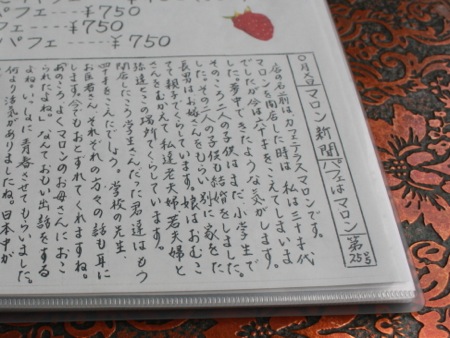 パフェ ---- ¥750
フェ ---- ¥750
パフェ ---- ¥750
○月×日 マロン新聞 パフェはマロン 第25号
店の名前はカフェテラスマロンです。
マロンを開店した時は、私は三十才代
でしたが今は六十才をこえてしまいま
した。夢中できたような気がします。
そのころ二人の子供はまだ小学生で
した。その二人の子供も結婚をしました。
長男はお嫁さんをもらい別に家をた
てて親子でくらしています。娘はおむこ
さんをむかえて私達老夫婦若夫婦と
孫達七つの場所でくらしています。
開店したころ学生さんだった君達はもう
四十才をこえたでしょう。学校の先生、
お医者さん それぞれの方々の話も耳に
します。今でもおとずれてくれますね。
あのころよくマロンのお母さんにおこ
られたよね。なんておもい出話をする
よね。いっしょに青春させてもらいました。
何より活気がありましたね。日本中が